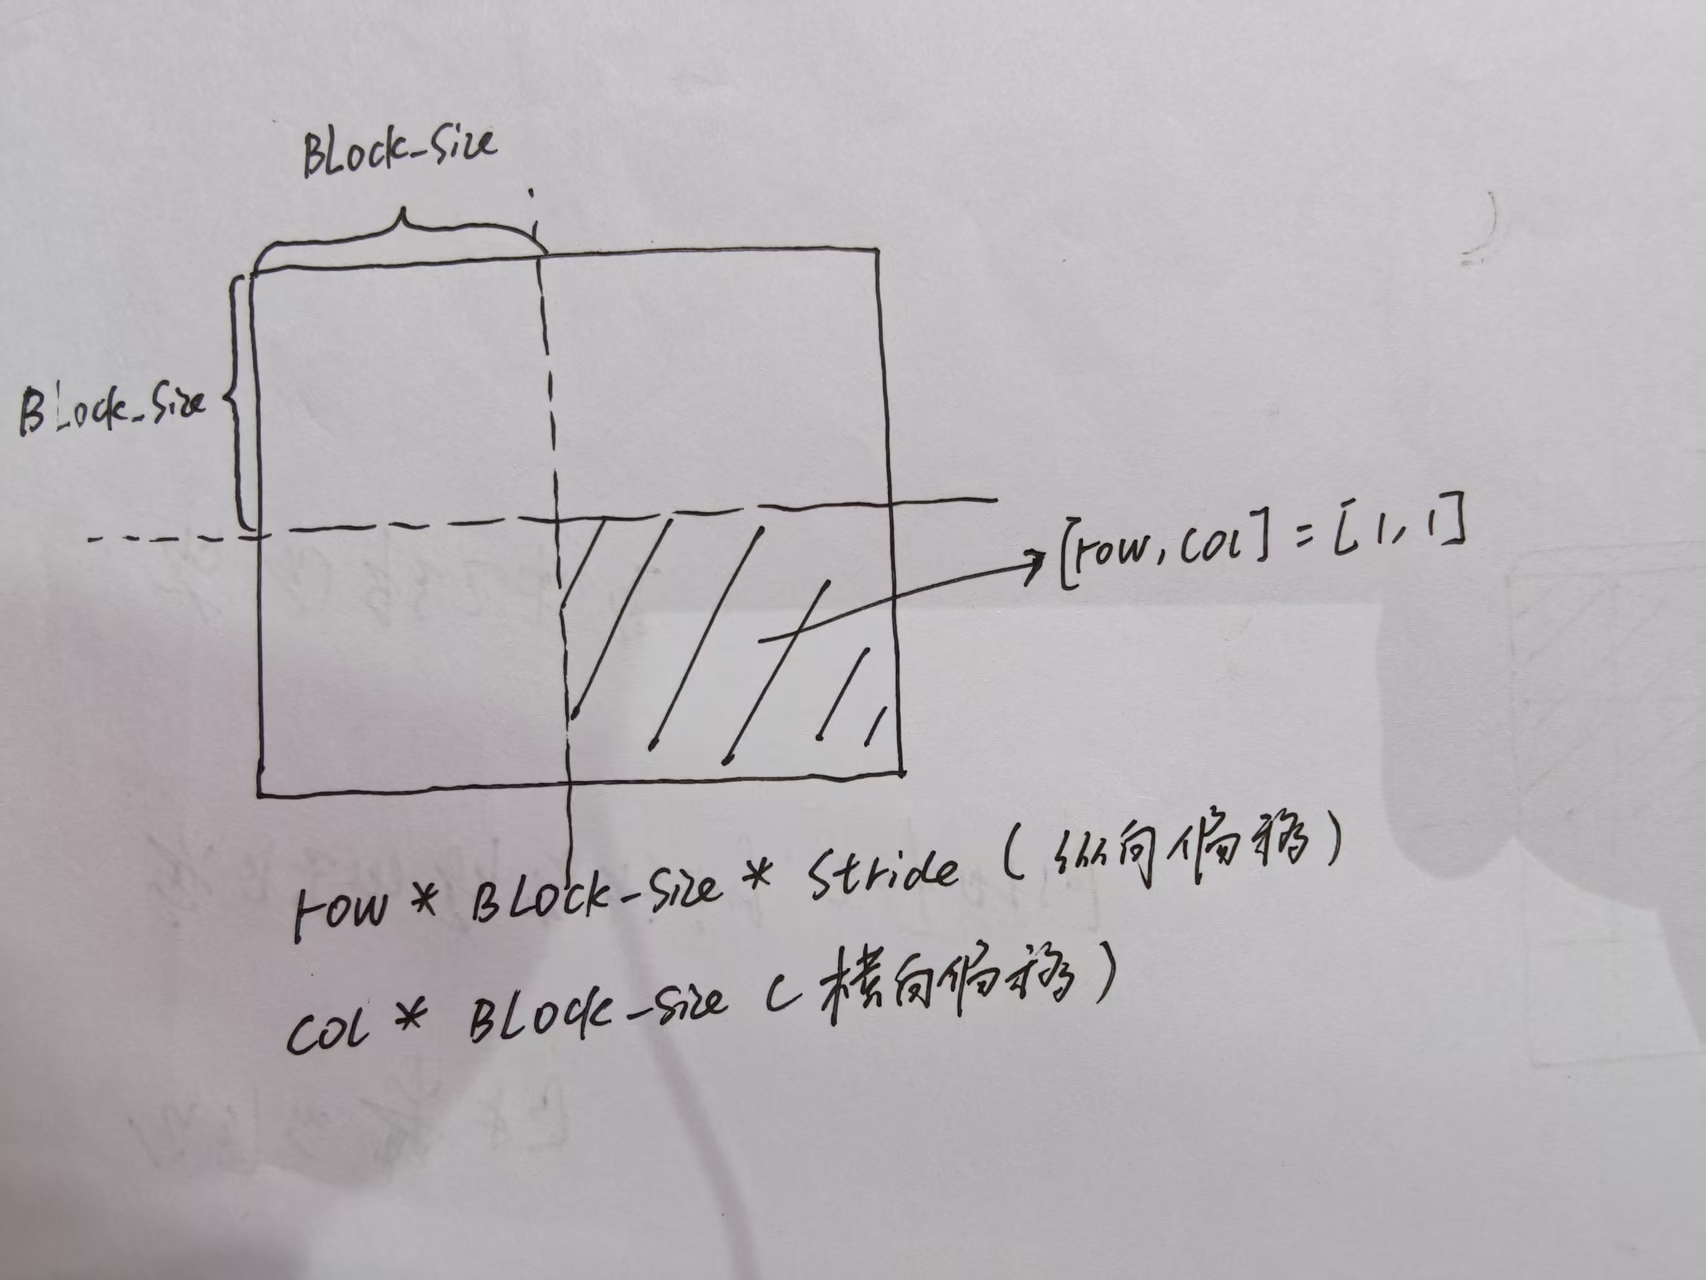 BLock_Size
BLock_Size
[row, col] = [1, 1]
row * BLock_Size * Stride (纵向偏移)
COL * BLock_Size (横向偏移)